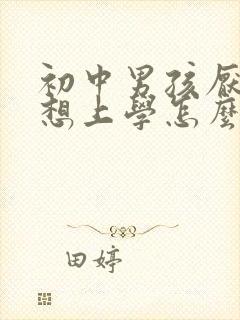 初中男孩厭
想上學怎麼
田婷